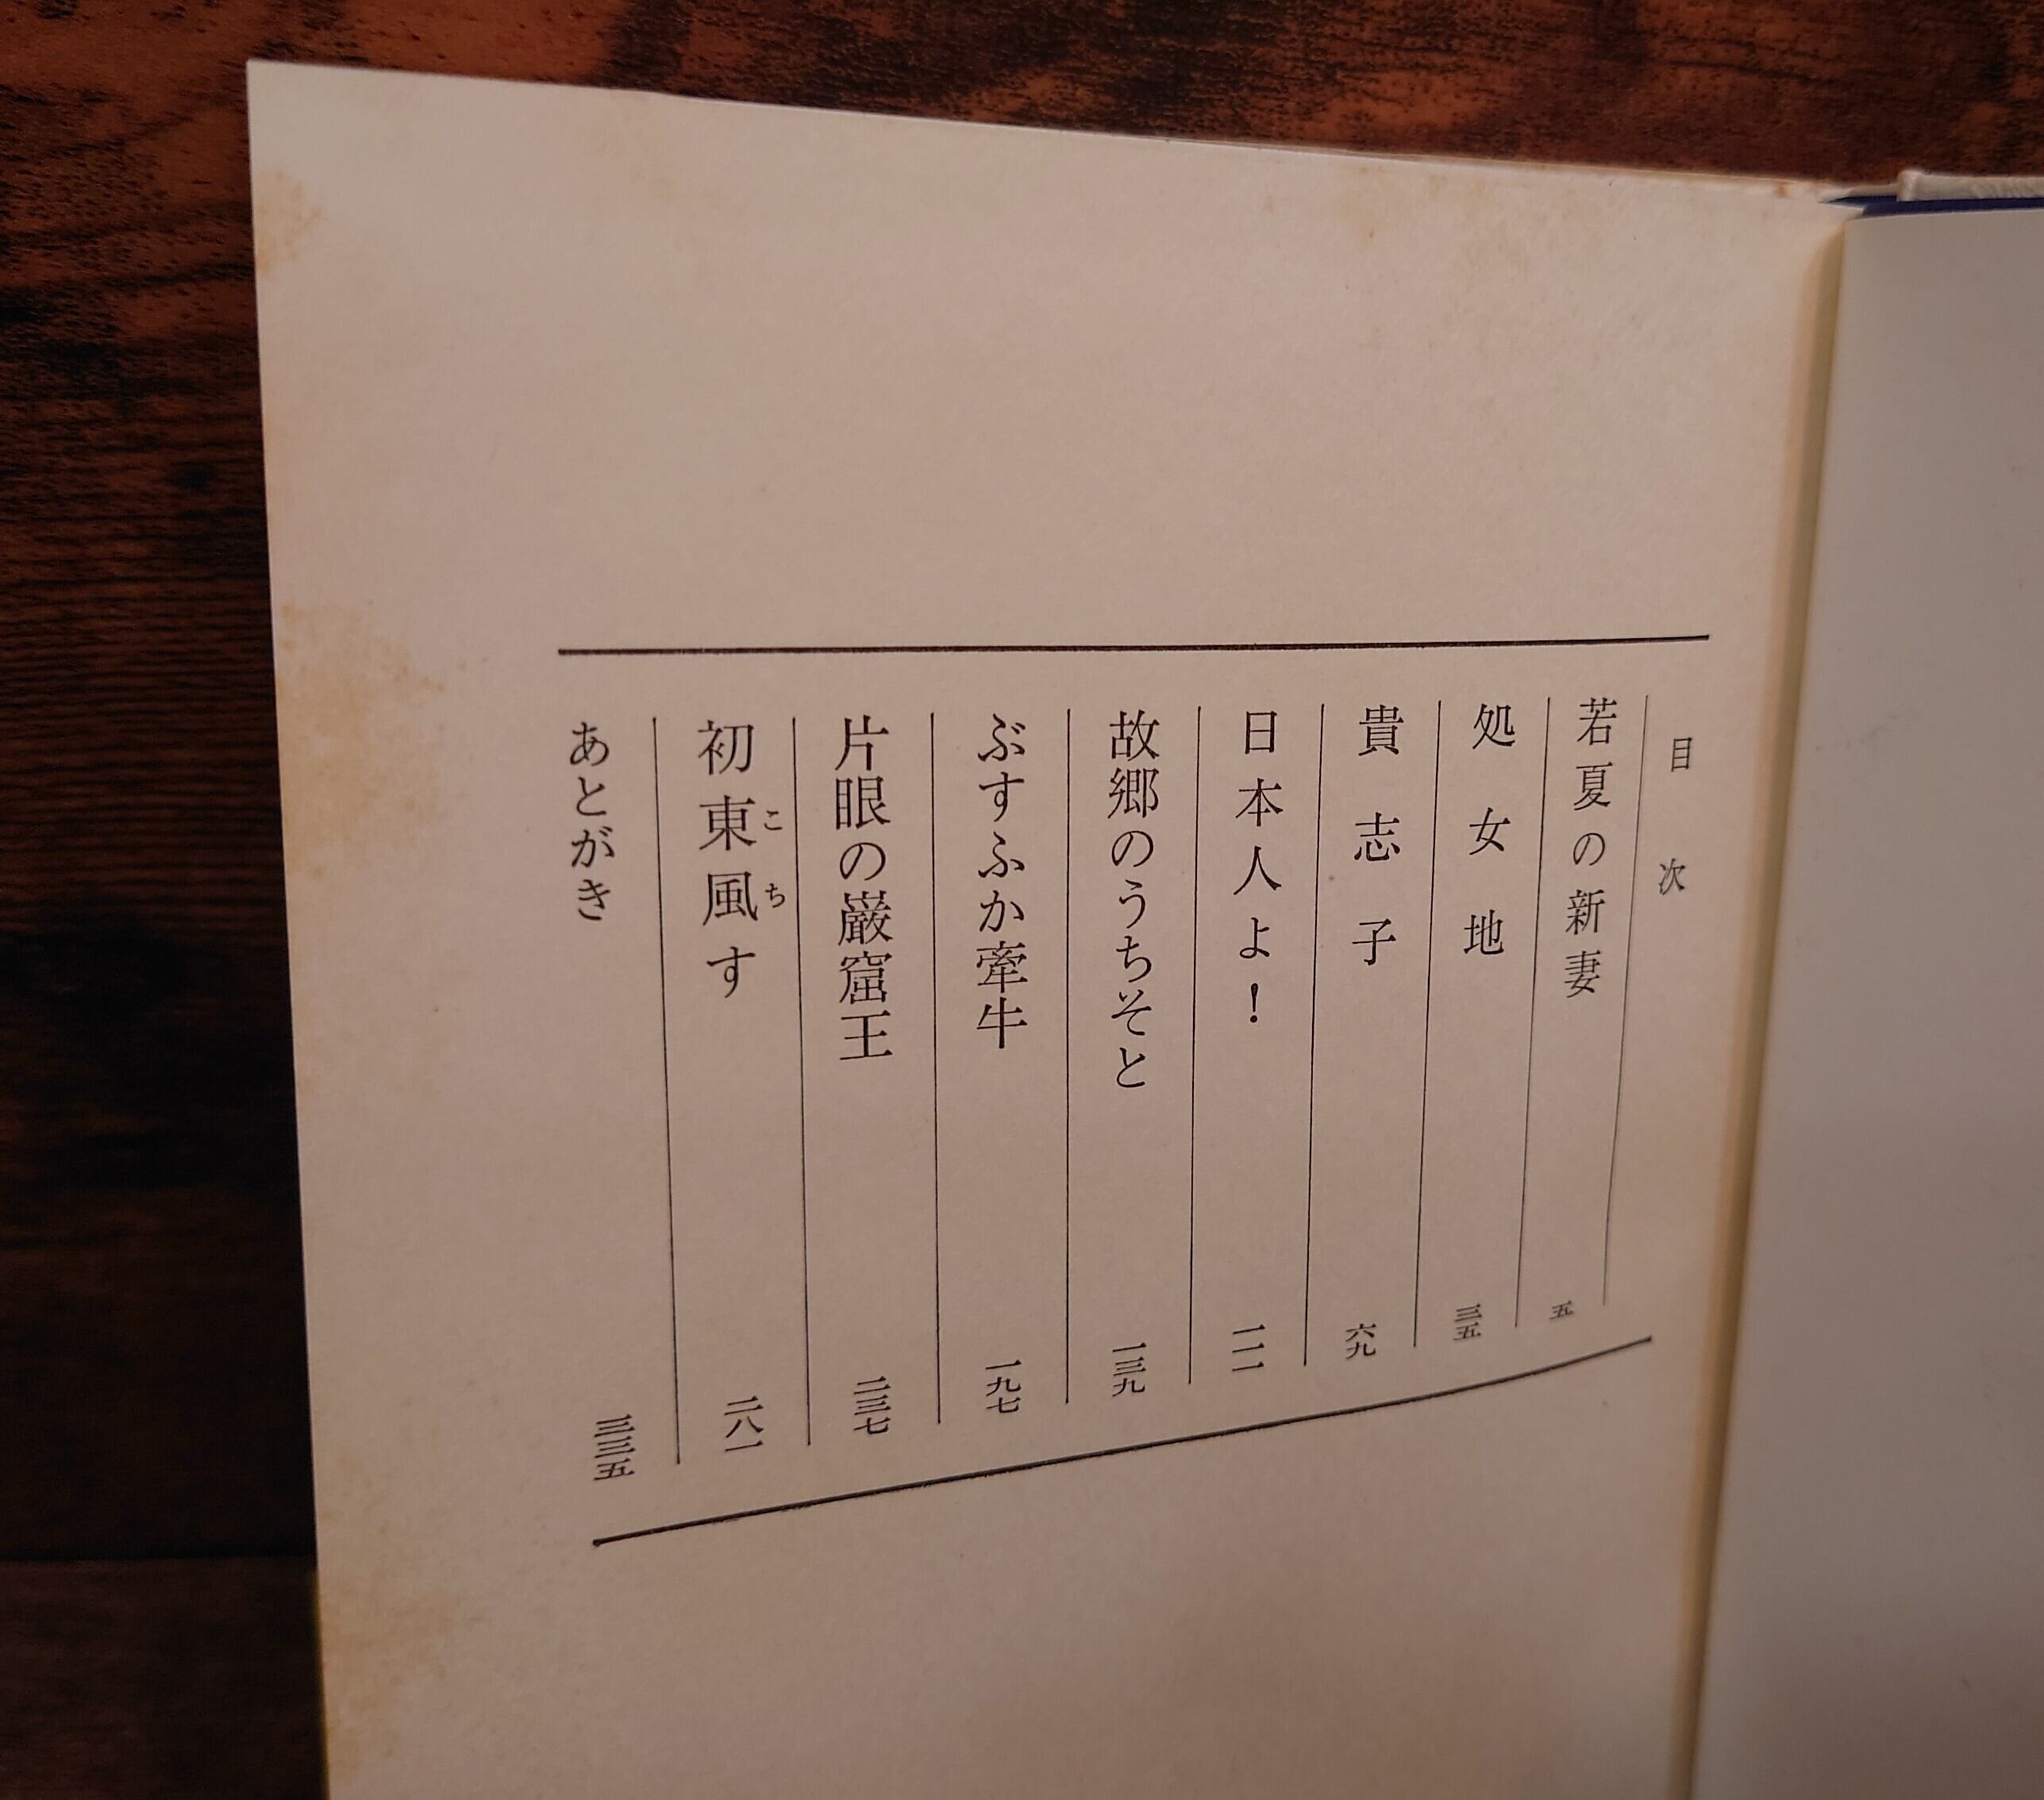 目次
若夏の新妻 五
処女地 三五
貴志子 六九
日本人よ！ 一一一
故郷のうちそと 一三九
ぶすふか牽牛 一九七
片眼の巌窟王 二三七
初東風す 二八一
こち
あとがき 三三五